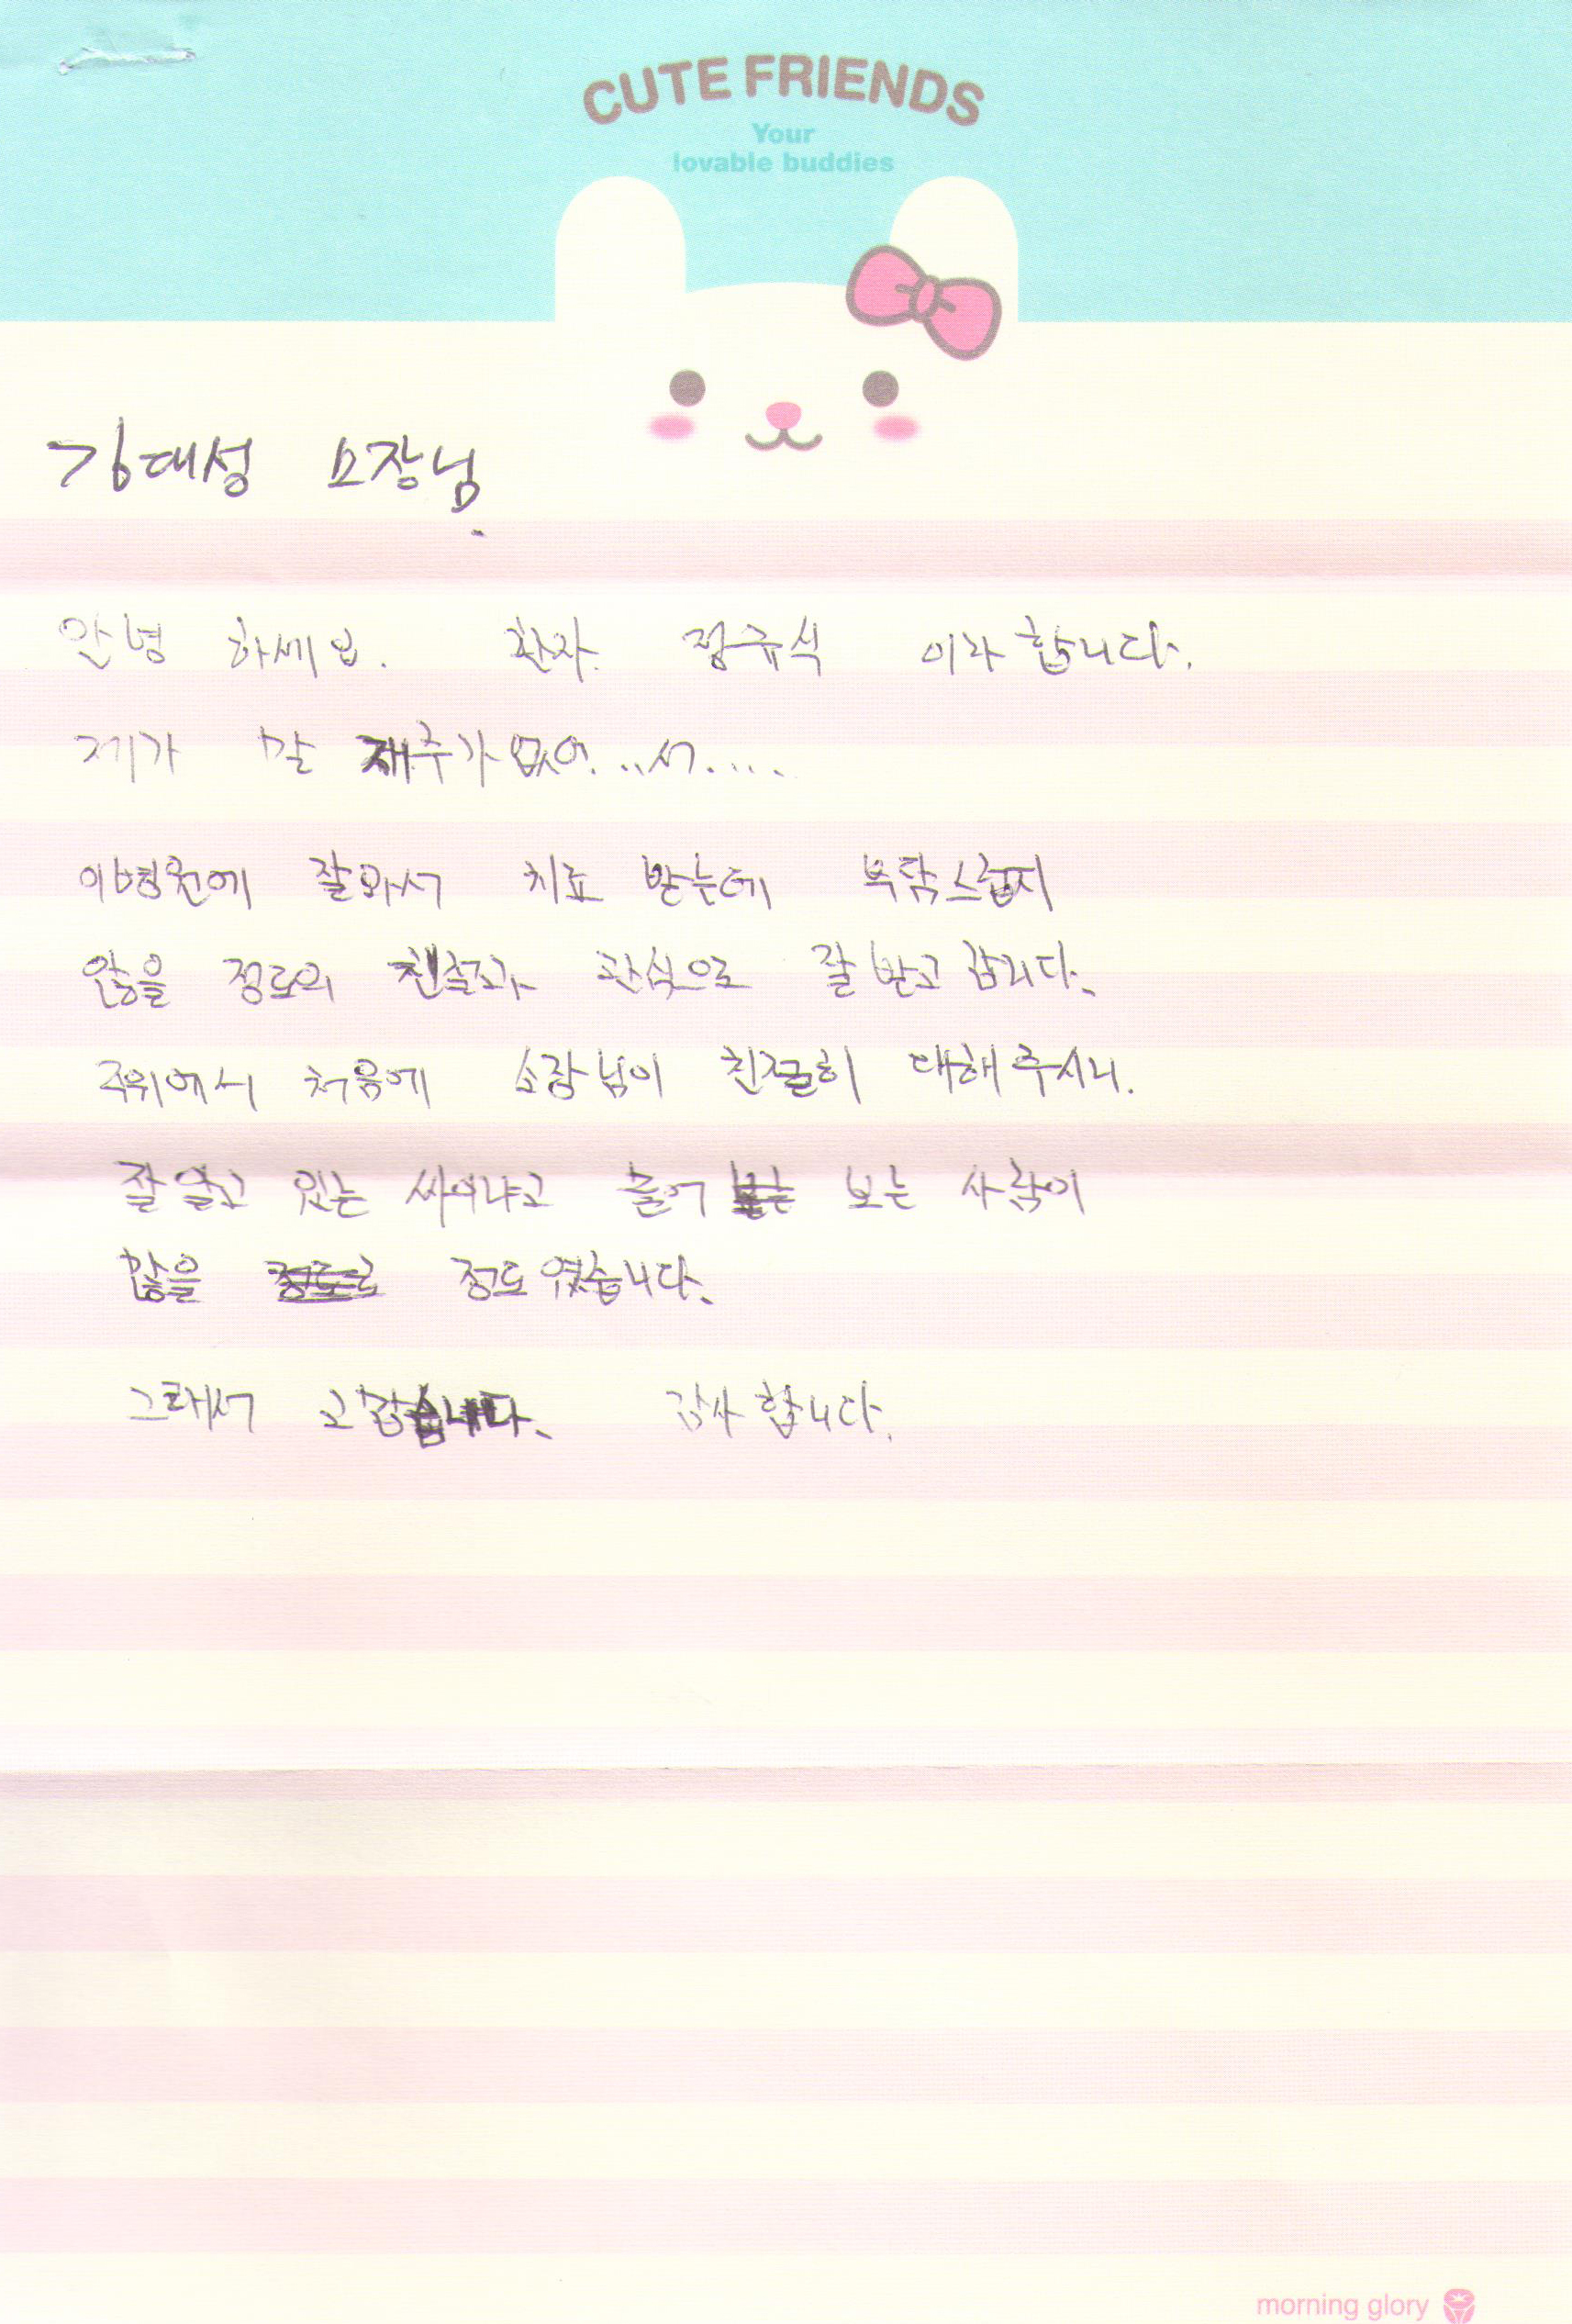 CUTE FRIENDS
Your
lovable buddies
김대성 소장님.
안녕 하세요. 환자. 정규식 이라 합니다.
제가 말 재주가 없어. ..서....
이병원에 잘와서 치료 받는데 부담스럽지
않을 정도의 친절과 관심으로 잘 받고 갑니다.
주위에서 처음에 소장님이 친절히 대해 주시니.
잘 알고 있는 싸이냐고 물어 보는 사람이
많을 정도 였습니다.
그래서 고맙습니다. 감사 합니다.
morning glory